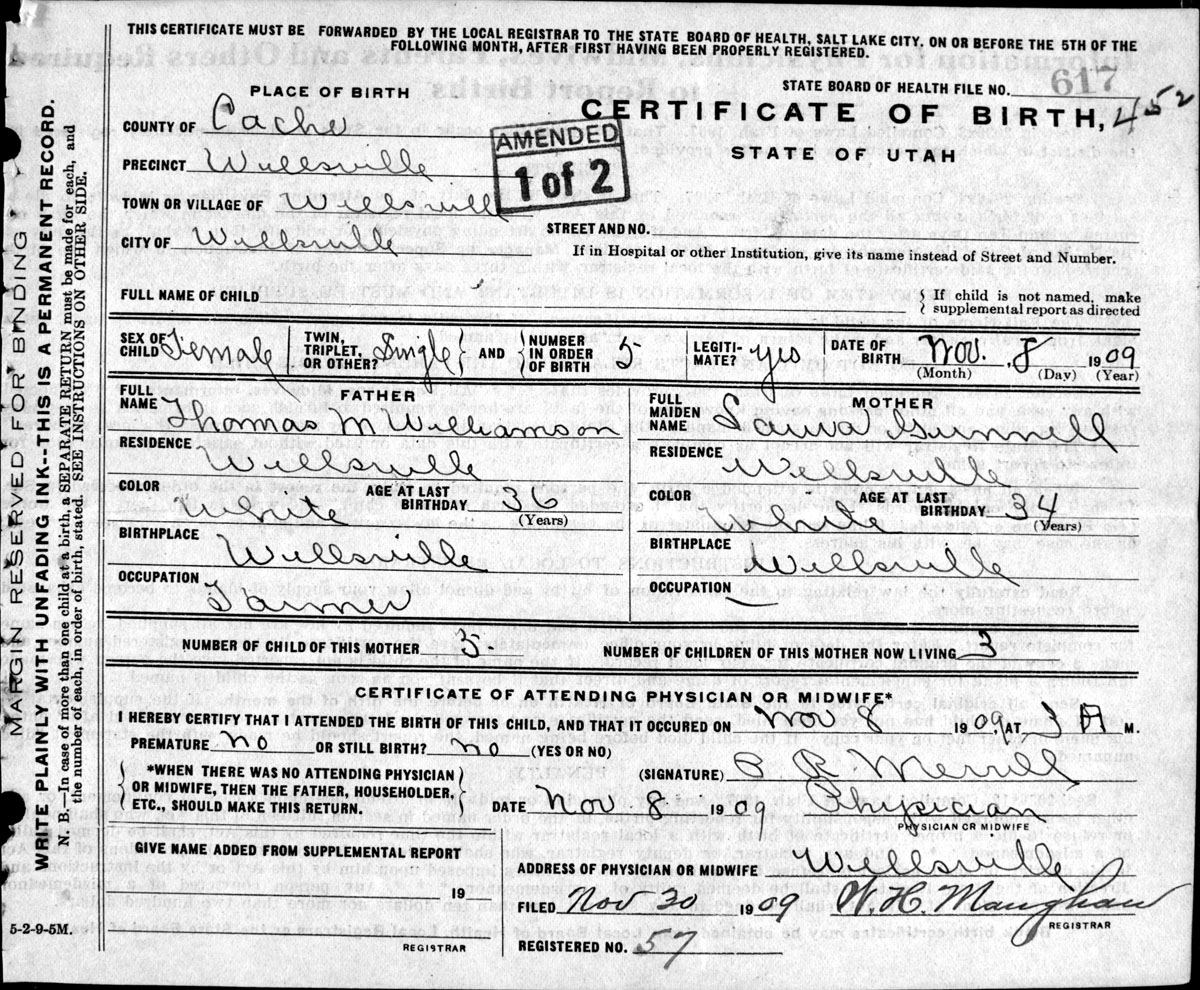 THIS CERTIFICATE MUST BE FORWARDED BY THE LOCAL REGISTRAR TO THE STATE BOARD OF HEALTH, SALT LAKE CITY, ON OR BEFORE THE 5TH OF THE
FOLLOWING MONTH, AFTER FIRST HAVING BEEN PROPERLY REGISTERED.
STATE BOARD OF HEALTH FILE NO. 617
PLACE OF BIRTH
CERTIFICATE OF BIRTH, 452
STATE OF UTAH
COUNTY OF Cache
AMENDED
1 of 2
PRECINCT Wellsville
TOWN OR VILLAGE OF Wellsville
STREET AND NO.
CITY OF Wellsville
If in Hospital or other Institution, give its name instead of Street and Number.
FULL NAME OF CHILD
{ If child is not named, make
supplemental report as directed
SEX OF CHILD Female TWIN, TRIPLET, OR OTHER? Single } AND { NUMBER IN ORDER OF BIRTH 5 LEGITI- MATE? yes DATE OF BIRTH Nov. 8 1909
(Month) (Day) (Year)
FATHER
FULL NAME Thomas M Williamson
RESIDENCE Wellsville
COLOR White AGE AT LAST BIRTHDAY 36
(Years)
BIRTHPLACE Wellsville
OCCUPATION Farmer
MOTHER
FULL MAIDEN NAME Laura Gunnell
RESIDENCE Wellsville
COLOR White AGE AT LAST BIRTHDAY 34
(Years)
BIRTHPLACE Wellsville
OCCUPATION
NUMBER OF CHILD OF THIS MOTHER 5 NUMBER OF CHILDREN OF THIS MOTHER NOW LIVING 3
CERTIFICATE OF ATTENDING PHYSICIAN OR MIDWIFE*
I HEREBY CERTIFY THAT I ATTENDED THE BIRTH OF THIS CHILD, AND THAT IT OCCURED ON Nov 8 1909, AT 3 A M.
PREMATURE no OR STILL BIRTH? no (YES OR NO)
{ *WHEN THERE WAS NO ATTENDING PHYSICIAN
OR MIDWIFE, THEN THE FATHER, HOUSEHOLDER,
ETC., SHOULD MAKE THIS RETURN. }
(SIGNATURE) Merrill
DATE Nov 8 1909 Physician
PHYSICIAN OR MIDWIFE
GIVE NAME ADDED FROM SUPPLEMENTAL REPORT
19
REGISTRAR
ADDRESS OF PHYSICIAN OR MIDWIFE Wellsville
FILED Nov 30 1909 W. H. Maughan
REGISTRAR
REGISTERED NO. 57
5-2-9-5M.
MARGIN RESERVED FOR BINDING
WRITE PLAINLY WITH UNFADING INK--THIS IS A PERMANENT RECORD.
N. B.—In case of more than one child at a birth, a SEPARATE RETURN must be made for each, and
the number of each, in order of birth, stated. SEE INSTRUCTIONS ON OTHER SIDE.